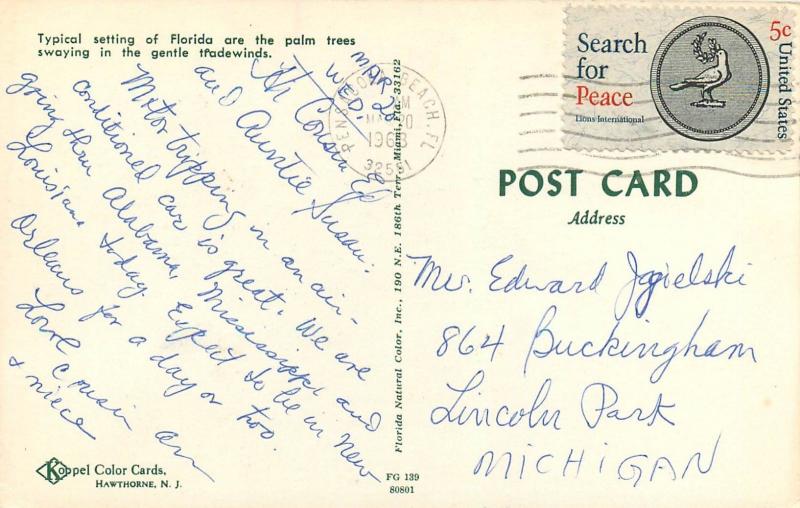 Typical setting of Florida are the palm trees
swaying in the gentle tradewinds.
MAR 20
WED.
Hi Cousin Ed
and Auntie Susan:
Motor tripping in an air-
conditioned car is great. We are
going thru Alabama, Mississippi and
Louisiana today. Expect to be in New
Orleans for a day or too.
Love Cousin
+ niece
Koppel Color Cards,
HAWTHORNE, N. J.
Florida Natural Color, Inc., 190 N.E. 186th Terr., Miami, Fla. 33162
FG 139
80801
PENSACOLA BEACH, FL
MAR 20
1968
32561
Search
for
Peace
Lions International
5c
United States
POST CARD
Address
Mr. Edward Jagielski
864 Buckingham
Lincoln Park
MICHIGAN